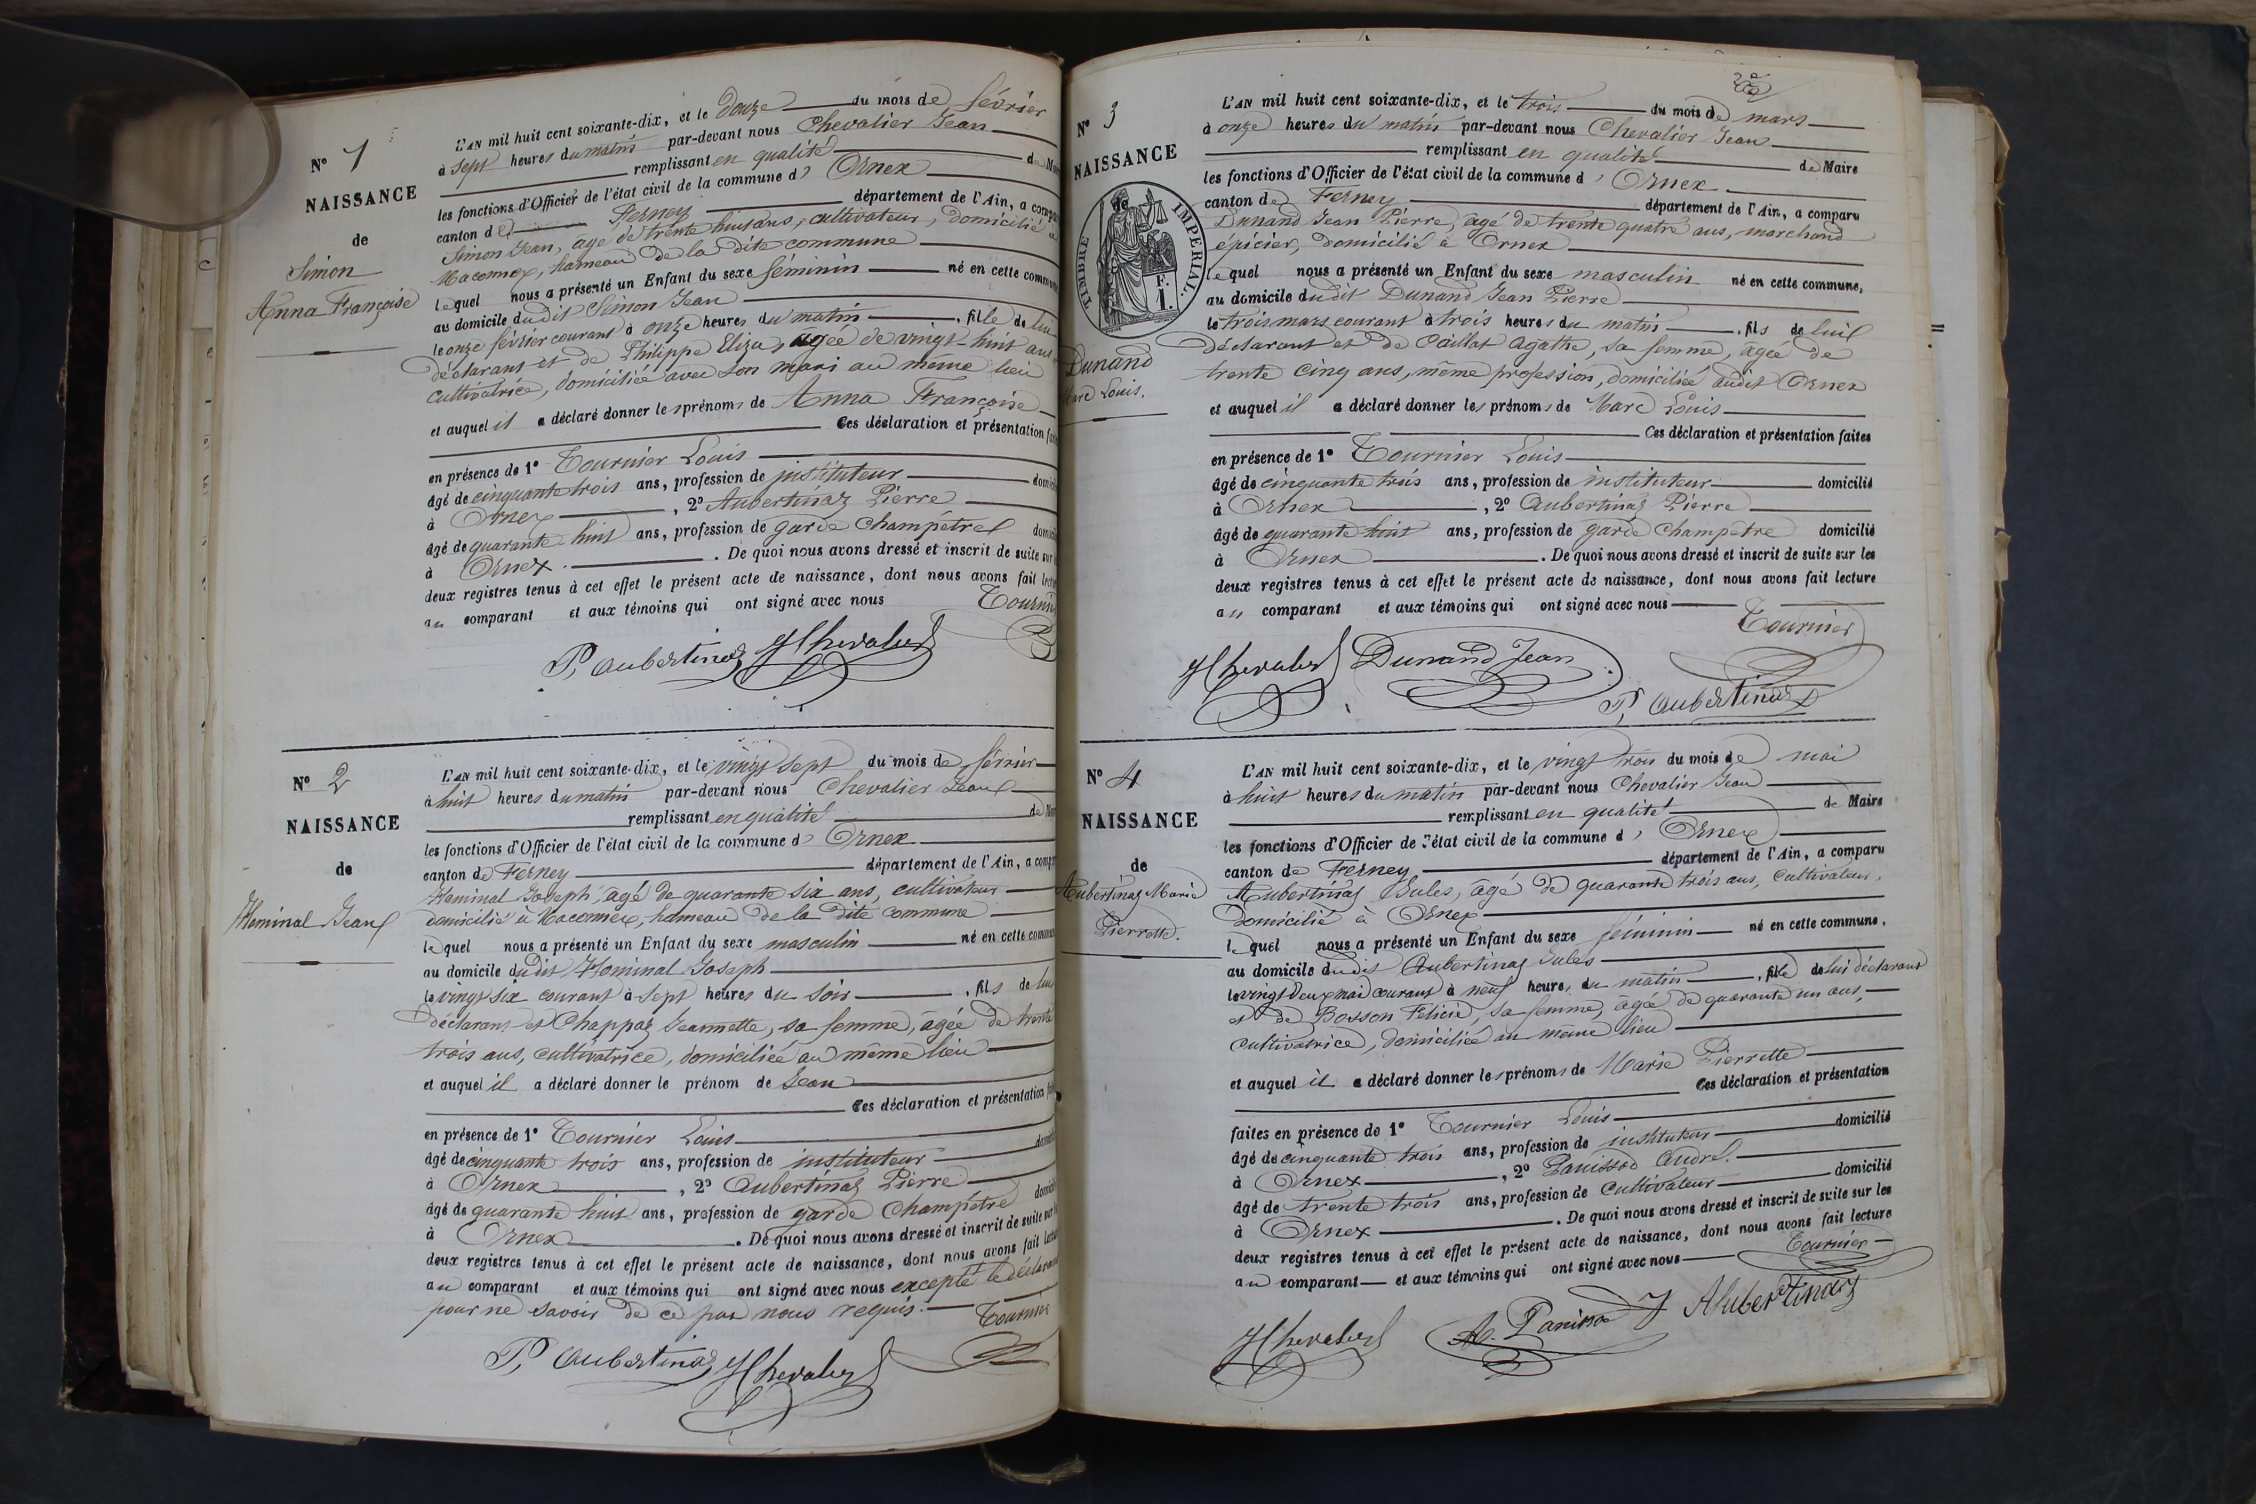 N° 1
NAISSANCE
de
Simon
Anna Françoise
L'AN mil huit cent soixante-dix, et le douze du mois de février
à sept heures du matin par-devant nous Chevalier Jean
remplissant en qualité de
les fonctions d'Officier de l'état civil de la commune d' Ornex
canton de Ferney département de l'Ain, a
Simon Jean, agé de trente huit ans, cultivateur, domicilié à
Maconnex, hameau de la dite commune
lequel nous a présenté un Enfant du sexe féminin né en cette
au domicile dudit Simon Jean
le onze février courant à onze heures du matin , fille de lui
déclarant et de Philippe Eliza, agée de vingt-huit ans
cultivatrice, domiciliée avec son mari au même lieu
et auquel il a déclaré donner les prénoms de Anna Françoise
Ces déclaration et présentation
en présence de 1° Tournier Louis
âgé de cinquante trois ans, profession de instituteur
à Ornex , 2° Aubertinaz Pierre
âgé de quarante huit ans, profession de garde champêtre
à Ornex . De quoi nous avons dressé et inscrit de suite sur
deux registres tenus à cet effet le présent acte de naissance, dont nous avons fait
au comparant et aux témoins qui ont signé avec nous Tournier
P. Aubertinaz J Chevalier
N° 2
NAISSANCE
de
Hominal Jean
L'AN mil huit cent soixante-dix, et le vingt sept du mois de février
à huit heures du matin par-devant nous Chevalier Jean
remplissant en qualité de
les fonctions d'Officier de l'état civil de la commune d' Ornex
canton de Ferney département de l'Ain, a
Hominal Joseph, agé de quarante six ans, cultivateur
domicilié à Maconnex, hameau de la dite commune
lequel nous a présenté un Enfant du sexe masculin né en cette
au domicile dudit Hominal Joseph
le vingt six courant à sept heures du soir , fils de lui
déclarant et Chappaz Jeannette, sa femme, âgée de trente
trois ans, cultivatrice, domiciliée au même lieu
et auquel il a déclaré donner le prénom de Jean
Ces déclaration et présentation
en présence de 1° Tournier Louis
âgé de cinquante trois ans, profession de instituteur
à Ornex , 2° Aubertinaz Pierre
âgé de quarante huit ans, profession de garde champêtre
à Ornex . De quoi nous avons dressé et inscrit de suite sur
deux registres tenus à cet effet le présent acte de naissance, dont nous avons fait
au comparant et aux témoins qui ont signé avec nous excepté le déclarant
pour ne savoir de ce par nous requis. Tournier
P. Aubertinaz J Chevalier
N° 3
NAISSANCE
TIMBRE IMPERIAL.
F.
1.
Dunand
Marc Louis.
L'AN mil huit cent soixante-dix, et le trois du mois de mars
à onze heures du matin par-devant nous Chevalier Jean
remplissant en qualité de Maire
les fonctions d'Officier de l'état civil de la commune d' Ornex
canton de Ferney département de l'Ain, a comparu
Dunand Jean Pierre, agé de trente quatre ans, marchand
épicier, domicilié à Ornex
lequel nous a présenté un Enfant du sexe masculin né en cette commune,
au domicile dudit Dunand Jean Pierre
le trois mars courant à trois heures du matin , fils de lui
déclarant et de Caillat Agathe, sa femme, âgée de
trente cinq ans, même profession, domiciliée audit Ornex
et auquel il a déclaré donner les prénoms de Marc Louis
Ces déclaration et présentation faites
en présence de 1° Tournier Louis
âgé de cinquante trois ans, profession de instituteur domicilié
à Ornex , 2° Aubertinaz Pierre
âgé de quarante huit ans, profession de garde champêtre domicilié
à Ornex . De quoi nous avons dressé et inscrit de suite sur les
deux registres tenus à cet effet le présent acte de naissance, dont nous avons fait lecture
au comparant et aux témoins qui ont signé avec nous Tournier
J Chevalier Dunand Jean
P. Aubertinaz
N° 4
NAISSANCE
de
Aubertinaz Marie
Pierrette.
L'AN mil huit cent soixante-dix, et le vingt trois du mois de mai
à huit heures du matin par-devant nous Chevalier Jean
remplissant en qualité de Maire
les fonctions d'Officier de l'état civil de la commune d' Ornex
canton de Ferney département de l'Ain, a comparu
Aubertinaz Jules, âgé de quarante trois ans, cultivateur,
domicilié à Ornex
lequel nous a présenté un Enfant du sexe féminin né en cette commune,
au domicile dudit Aubertinaz Jules
le vingt deux mai courant à neuf heures du matin , fille de lui déclarant
et de Bosson Félicie, sa femme, âgée de quarante un ans,
cultivatrice, domiciliée au même lieu
et auquel il a déclaré donner les prénoms de Marie Pierrette
Ces déclaration et présentation
faites en présence de 1° Tournier Louis
âgé de cinquante trois ans, profession de instituteur domicilié
à Ornex , 2° Panissod André.
âgé de trente trois ans, profession de cultivateur domicilié
à Ornex . De quoi nous avons dressé et inscrit de suite sur les
deux registres tenus à cet effet le présent acte de naissance, dont nous avons fait lecture
au comparant et aux témoins qui ont signé avec nous Tournier
J Chevalier A. Panissod J Aubertinaz